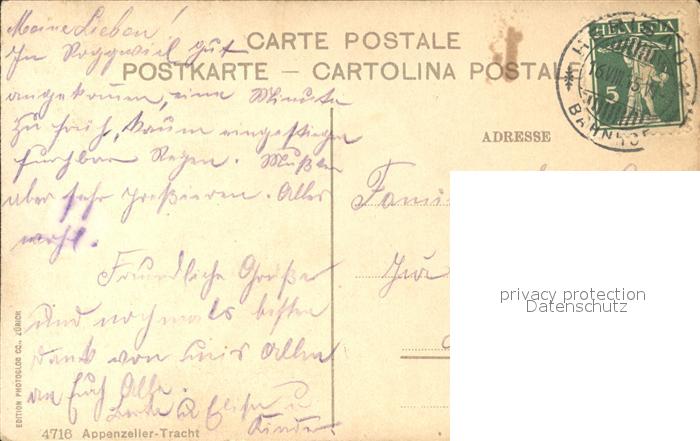 Meine Lieben!
In Roggwiel gut
CARTE POSTALE
POSTKARTE — CARTOLINA POSTALE
angekommen, eine Minute
zu früh, kaum eingestiegen
furchbar Regen. Mußten
aber sehr preßieren. Alles
wohl.
Freundliche Grüße
und nochmals besten
Dank von uns Allen
an Euch Alle.
u Elisa u
Kinder.
HELVETIA
5
BAHNHOF
ADRESSE
Fami
privacy protection
Datenschutz
EDITION PHOTOGLOB CO., ZÜRICH
4716 Appenzeller-Tracht